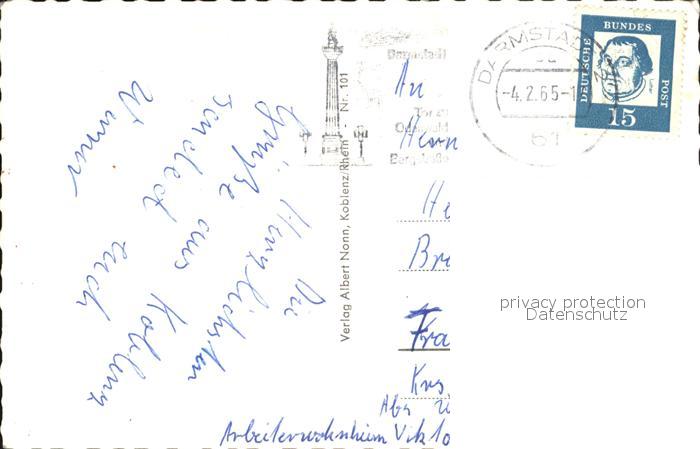 Die
Herzlichsten
Grüße aus Koblenz
sendet euch
Werner
Verlag Albert Nonn, Koblenz/Rhein - Nr. 101
Darmstadt
Tor zu
Odenwald
Bergstraße
DARMSTADT
-4.2.65-1
61
DEUTSCHE
BUNDES
POST
15
An
Herrn
He
Bre
Fra
Krs
Arbeiterwohnheim
privacy protection
Datenschutz